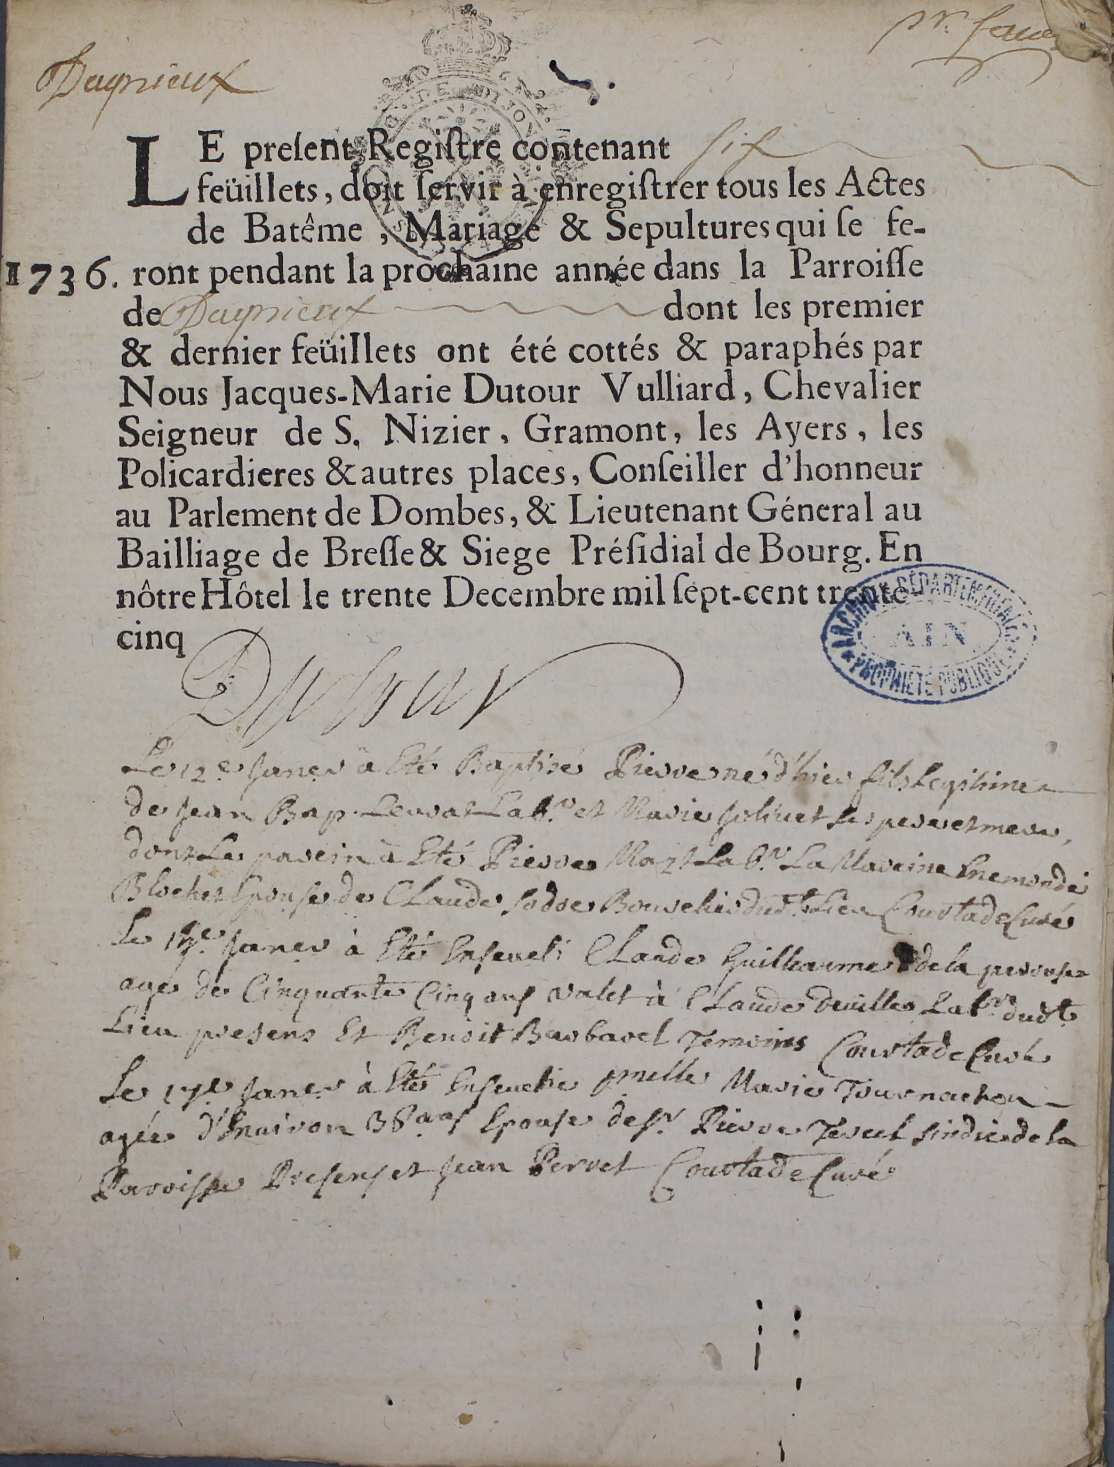 Dagnieux
LE present Registre contenant six
feüillets, doit servir à enregistrer tous les Actes
de Batême, Mariage & Sepultures qui se fe-
1736. ront pendant la prochaine année dans la Parroisse
de Dagnieux dont les premier
& dernier feüillets ont été cottés & paraphés par
Nous Jacques-Marie Dutour Vulliard, Chevalier
Seigneur de S. Nizier, Gramont, les Ayers, les
Policardieres & autres places, Conseiller d'honneur
au Parlement de Dombes, & Lieutenant Géneral au
Bailliage de Bresse & Siege Présidial de Bourg. En
nôtre Hôtel le trente Decembre mil sept-cent trente
cinq
ARCHIVES DÉPARTEMENTALES
AIN
PROPRIÉTÉ PUBLIQUE
Dutour
Le 12e Janer à Eté Baptisé Pierre né d'hier fils Legitime
de Jean Bap. Lab.r et Marie ses pere et mere,
dont Le parein à Eté Pierre Lab.r La Mareine
Blochet Epouse de Claude dud.t Lieu Courtade Curé
Le Janer à Eté Enseveli Claude Guillaume de la
age de Cinquante Cinq ans valet à Claude Lab.r dud.t
Lieu presens Et Benoit Barbaret Temoins Courtade Curé
Le 17e Janer à Eté Ensevelie Marie Tournachon
agée d'Enairon 38 ans Epouse de S.r Pierre sindic de la
Paroisse Presens et Jean Perret Courtade Curé